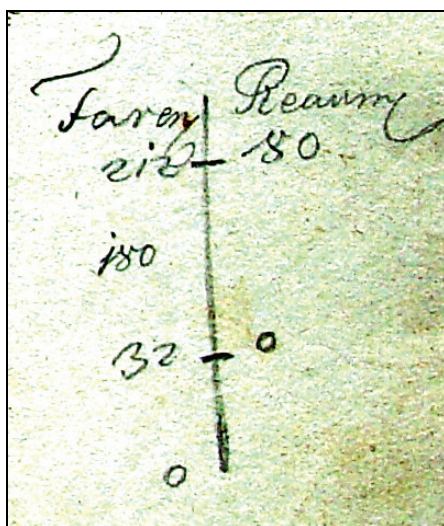 Faren Reaum
212 80
180
32 0
0